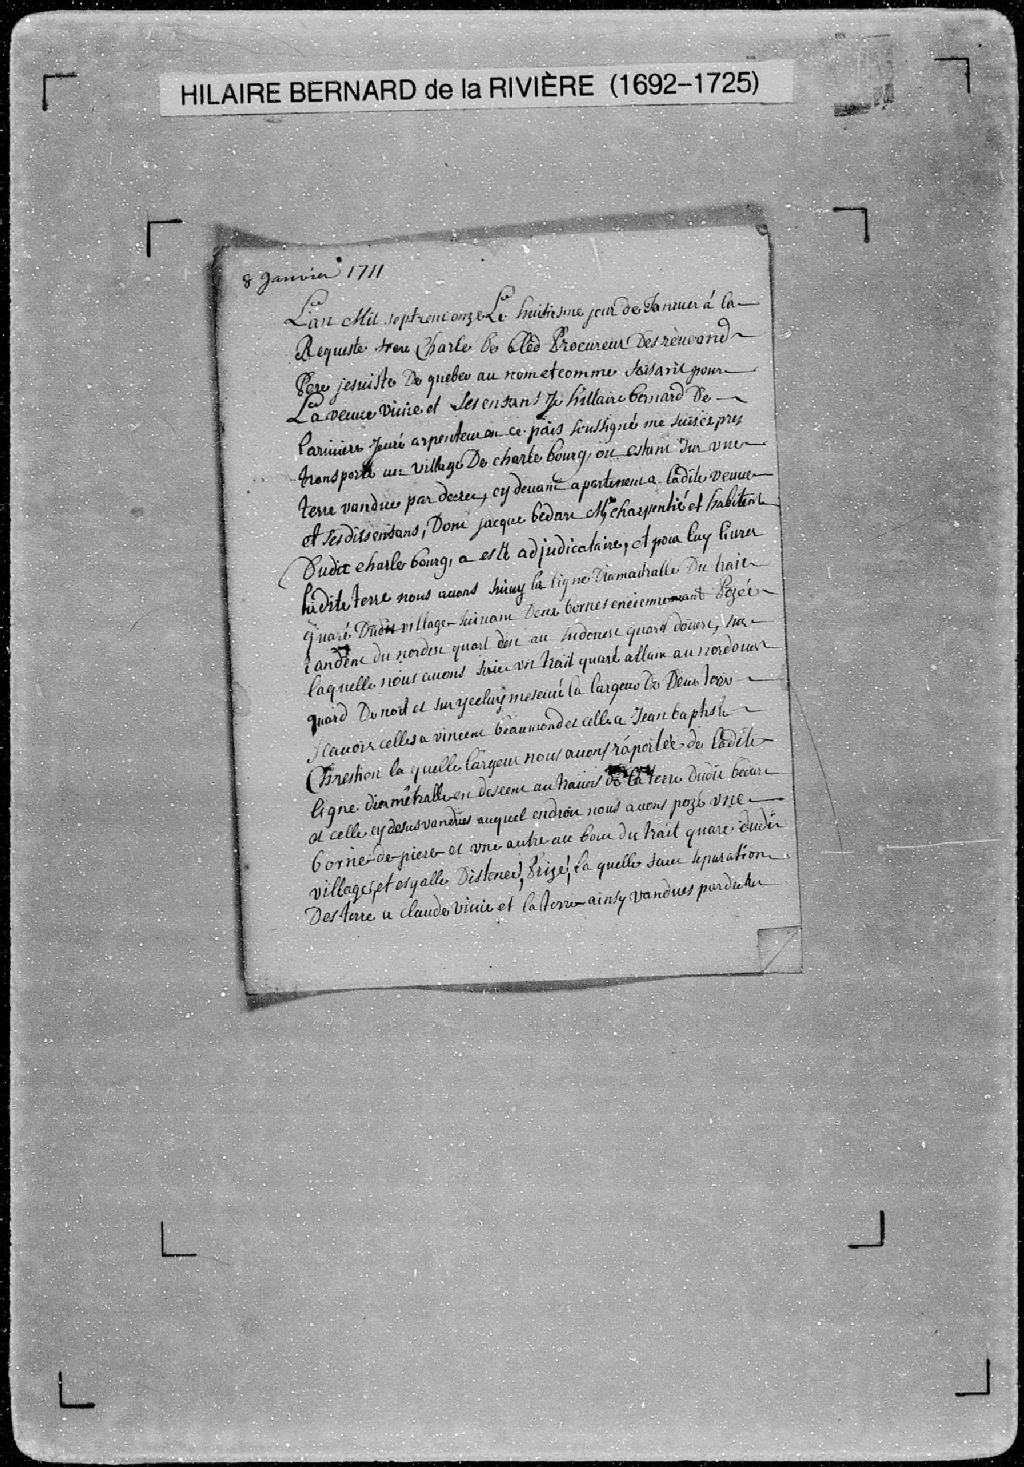 HILAIRE BERNARD de la RIVIÈRE (1692–1725)
8 Janvier 1711
L'an Mil sept cent onze Le huitiesme jour de Janvier á la
Requeste frere Charle Procureur Des reverand
Pere jesuiste De quebec au nom et comme pour
La veuve vivié et Ses enfans Je hillaire bernard De
lariviere Juré arpenteur en ce païs soussigné me suis expres
transporté au village De charle bourg, où estant sur vne
terre vandue par decret, cy devant apartenent a ladite veuve
et ses dits enfans, Dont jacque bedare Mtre charpentié et habitant
Dudit charle bourg, a esté adjudicataire, et pour luy livrer
ladite terre nous avons suivy la ligne Diamaitralle Du trait
quaré Dudit village suivant Deux bornes enciennement Pozéé
randent du nordest quart dest au sudouest quart douest, sur
laquelle nous avons tirée vn trait quaré allant au nordouest
quard Du nord et sur ycelluy mesuré la largeur De Deux terre
scavoir celles a vincent beaumond et celle a Jean baptiste
Chrestien la quelle largeur nous avons raportéé de ladite
ligne diamétralle en descent au travers de la terre dudit bedare
et celle cy desus vandues auquel endroit nous avons pozé vne
borne de piere et vne autre au bout du trait quare dudit
village, et esgalle Distence, Prizé, La quelle separation
Des terre a claude vivié et la terre ainsy vandues par decret